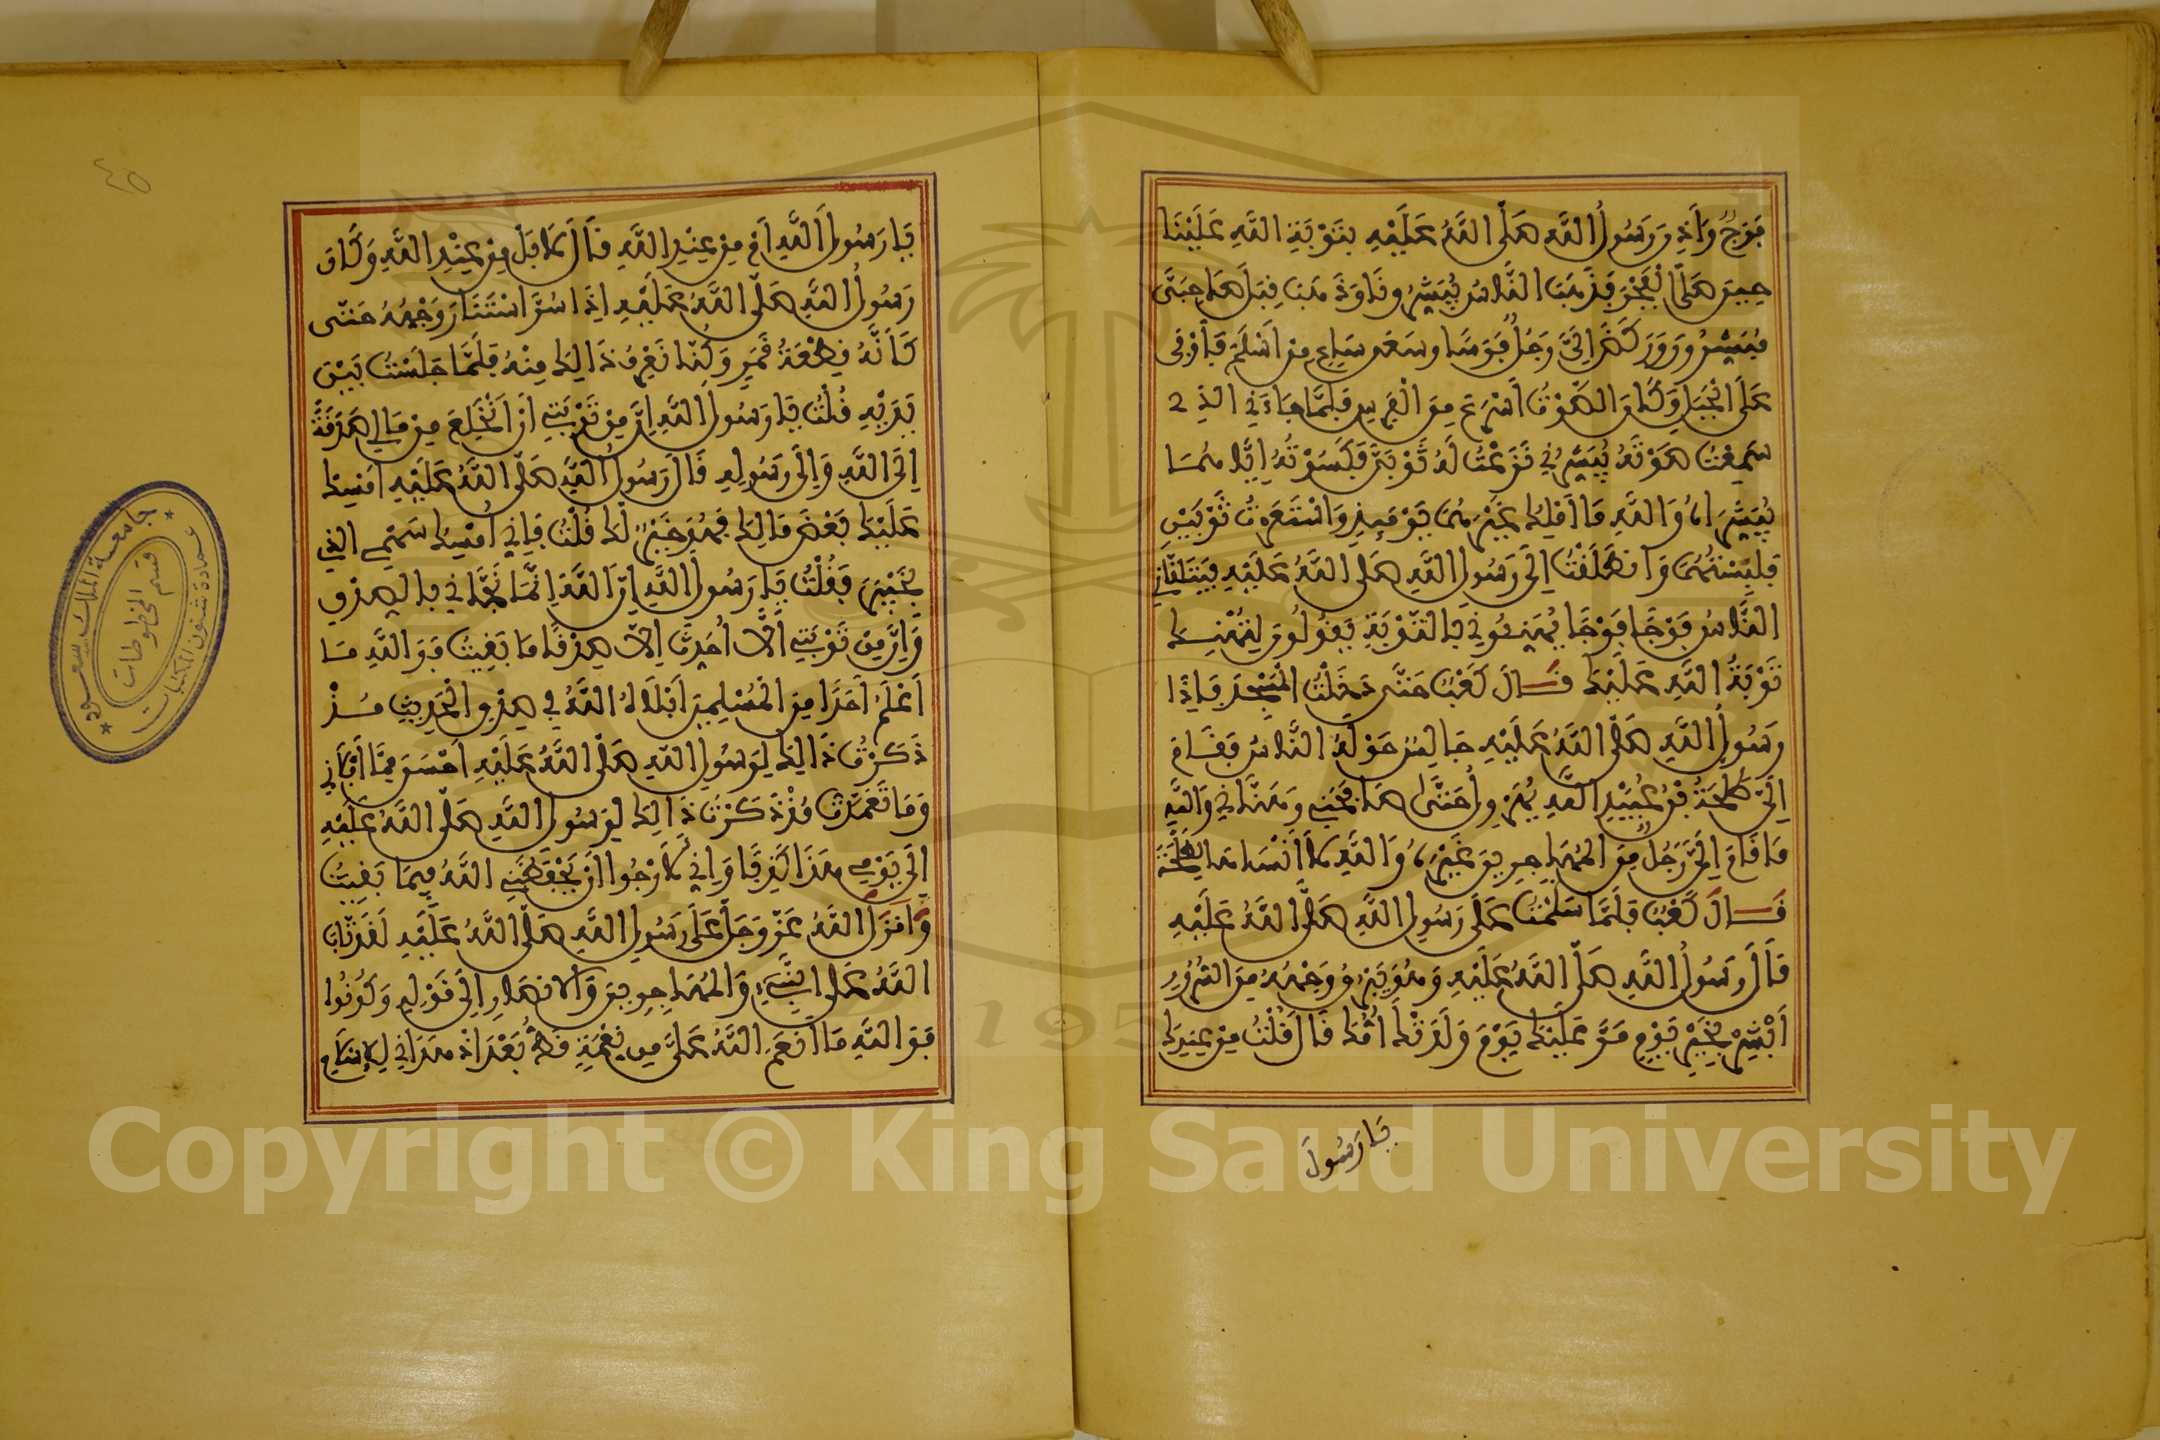 فَرَجٌ وَأَذِنَ رَسُولُ اللَّهِ صَلَّى اللَّهُ عَلَيْهِ بِتَوْبَةِ اللَّهِ عَلَيْنَا
حِينَ صَلَّى الْفَجْرَ فَذَهَبَ النَّاسُ يُبَشِّرُونَا وَذَهَبَ قِبَلَ صَاحِبَيَّ
مُبَشِّرُونَ وَرَكَضَ إِلَيَّ رَجُلٌ فَرَسًا وسَعَى سَاعٍ مِنْ أَسْلَمَ فَأَوْفَى
عَلَى الْجَبَلِ وَكَانَ الصَّوْتُ أَسْرَعَ مِنَ الْفَرَسِ فَلَمَّا جَاءَنِي الذِي
سَمِعْتُ صَوْتَهُ يُبَشِّرُنِي نَزَعْتُ لَهُ ثَوْبَيَّ فَكَسَوْتُهُ إِيَّاهُمَا
بِبُشْرَاهُ وَاللَّهِ مَا أَمْلِكُ غَيْرَهُمَا يَوْمَئِذٍ وَاسْتَعَرْتُ ثَوْبَيْنِ
فَلَبِسْتُهُمَا وَانْطَلَقْتُ إِلَى رَسُولِ اللَّهِ صَلَّى اللَّهُ عَلَيْهِ فَيَتَلَقَّانِي
النَّاسُ فَوْجًا فَوْجًا يُهَنِّئُونِي بِالتَّوْبَةِ يَقُولُونَ لِتَهْنِكَ
تَوْبَةُ اللَّهِ عَلَيْكَ قَالَ كَعْبٌ حَتَّى دَخَلْتُ الْمَسْجِدَ فَإِذَا
رَسُولُ اللَّهِ صَلَّى اللَّهُ عَلَيْهِ جَالِسٌ حَوْلَهُ النَّاسُ فَقَامَ
إِلَيَّ طَلْحَةُ بْنُ عُبَيْدِ اللَّهِ يُهَرْوِلُ حَتَّى صَافَحَنِي وَهَنَّانِي وَاللَّهِ
مَا قَامَ إِلَيَّ رَجُلٌ مِنَ الْمُهَاجِرِينَ غَيْرُهُ وَاللَّهِ لَا أَنْسَاهَا لِطَلْحَةَ
قَالَ كَعْبٌ فَلَمَّا سَلَّمْتُ عَلَى رَسُولِ اللَّهِ صَلَّى اللَّهُ عَلَيْهِ
قَالَ رَسُولُ اللَّهِ صَلَّى اللَّهُ عَلَيْهِ وَهُوَ يَبْرُقُ وَجْهُهُ مِنَ السُّرُورِ
أَبْشِرْ بِخَيْرِ يَوْمٍ مَرَّ عَلَيْكَ يَوْمَ وَلَدَتْكَ أُمُّكَ قَالَ قُلْتُ مِنْ عِنْدِكَ
يَا رَسُولَ
يَا رَسُولَ اللَّهِ أَمْ مِنْ عِنْدِ اللَّهِ قَالَ لَا بَلْ مِنْ عِنْدِ اللَّهِ وَكَانَ
رَسُولُ اللَّهِ صَلَّى اللَّهُ عَلَيْهِ إِذَا سُرَّ اسْتَنَارَ وَجْهُهُ حَتَّى
كَأَنَّهُ قِطْعَةُ قَمَرٍ وَكُنَّا نَعْرِفُ ذَالِكَ مِنْهُ فَلَمَّا جَلَسْتُ بَيْنَ
يَدَيْهِ قُلْتُ يَا رَسُولَ اللَّهِ إِنَّ مِنْ تَوْبَتِي أَنْ أَنْخَلِعَ مِنْ مَالِي صَدَقَةً
إِلَى اللَّهِ وَإِلَى رَسُولِهِ قَالَ رَسُولُ اللَّهِ صَلَّى اللَّهُ عَلَيْهِ أَمْسِكْ
عَلَيْكَ بَعْضَ مَالِكَ فَهُوَ خَيْرٌ لَكَ قُلْتُ فَإِنِّي أُمْسِكُ سَهْمِي الذِي
بِخَيْبَرَ فَقُلْتُ يَا رَسُولَ اللَّهِ إِنَّ اللَّهَ إِنَّمَا نَجَّانِي بِالصِّدْقِ
وَإِنَّ مِنْ تَوْبَتِي أَلَّا أُحَدِّثَ إِلَّا صِدْقًا مَا بَقِيتُ فَوَ اللَّهِ مَا
أَعْلَمُ أَحَدًا مِنَ الْمُسْلِمِينَ أَبْلَاهُ اللَّهُ فِي صِدْقِ الْحَدِيثِ مُذْ
ذَكَرْتُ ذَالِكَ لِرَسُولِ اللَّهِ صَلَّى اللَّهُ عَلَيْهِ أَحْسَنَ مِمَّا أَبْلَانِي
وَمَا تَعَمَّدْتُ مُذْ ذَكَرْتُ ذَالِكَ لِرَسُولِ اللَّهِ صَلَّى اللَّهُ عَلَيْهِ
إِلَى يَوْمِي هَذَا كَذِبًا وَإِنِّي لَأَرْجُوا أَنْ يَحْفَظَنِيَ اللَّهُ فِيمَا بَقِيتُ
وَأَنْزَلَ اللَّهُ عَزَّ وَجَلَّ عَلَى رَسُولِ اللَّهِ صَلَّى اللَّهُ عَلَيْهِ لَقَد تَّابَ
اللَّهُ عَلَى النَّبِيِّ وَالْمُهَاجِرِينَ وَالْأَنصَارِ إِلَى قَوْلِهِ وَكُونُوا
فَوَ اللَّهِ مَا أَنْعَمَ اللَّهُ عَلَيَّ مِن نِعْمَةٍ قَطُّ بَعْدَ إِذْ هَدَانِي لِلْإِسْلَامِ
٤٥
جامعة الملك سعود
عمادة شئون المكتبات
قسم المخطوطات
1957
Copyright © King Saud University